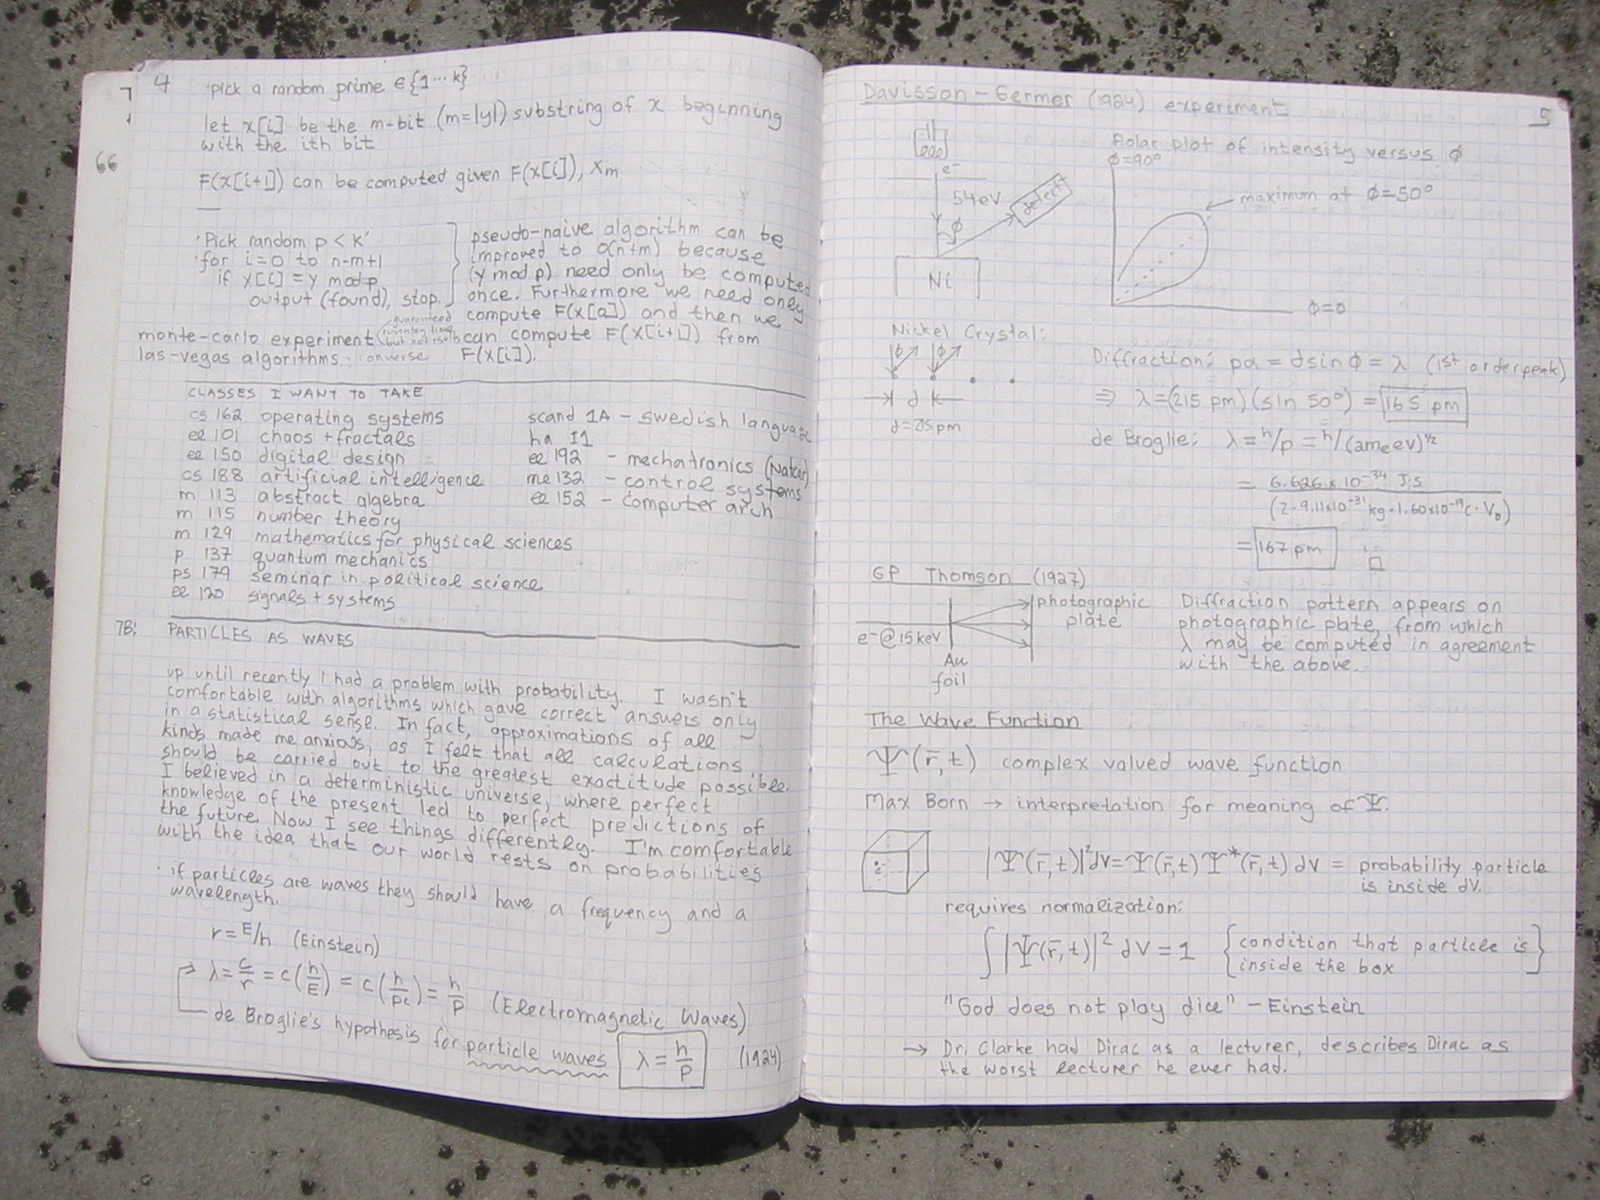 4
pick a random prime ∈ {1 ... k}
let x[i] be the m-bit (m=|y|) substring of x beginning
with the ith bit
66
F(x[i+1]) can be computed given F(x[i]), Xm
Pick random p < k
for i=0 to n-m+1
if x[i] = y mod p
output (found), stop.
pseudo-naive algorithm can be
improved to O(n+m) because
(y mod p) need only be computed
once. Furthermore we need only
compute F(x[0]) and then we
can compute F(X[i+1]) from
F(x[i]).
monte-carlo experiment
las-vegas algorithms - converse
CLASSES I WANT TO TAKE
cs 162 operating systems
ee 101 chaos + fractals
ee 150 digital design
cs 188 artificial intelligence
m 113 abstract algebra
m 115 number theory
m 129 mathematics for physical sciences
p 137 quantum mechanics
ps 179 seminar in political science
ee 120 signals + systems
scand 1A - swedish language
ha I1
ee 192 - mechatronics (Natcar)
me 132 - control systems
ee 152 - computer arch
7B: PARTICLES AS WAVES
up until recently I had a problem with probability. I wasn't
comfortable with algorithms which gave correct answers only
in a statistical sense. In fact, approximations of all
kinds made me anxious, as I felt that all calculations
should be carried out to the greatest exactitude possible.
I believed in a deterministic universe, where perfect
knowledge of the present led to perfect predictions of
the future. Now I see things differently. I'm comfortable
with the idea that our world rests on probabilities
· if particles are waves they should have a frequency and a
wavelength.
r = E/h (Einstein)
λ = c/r = c(h/E) = c(h/pc) = h/p (Electromagnetic Waves)
de Broglie's hypothesis for particle waves λ = h/p (1924)
5
Davisson-Germer (1924) experiment
e⁻
54eV
ϕ
detect
Ni
Polar plot of intensity versus ϕ
ϕ=90°
maximum at ϕ=50°
ϕ=0
Nickel Crystal:
ϕ ϕ
d
d=215pm
Diffraction: pd = d sin ϕ = λ (1st order peak)
⇒ λ=(215 pm)(sin 50°) = 165 pm
de Broglie: λ = h/p = h/(2mₑeV)^½
= 6.626 x 10⁻³⁴ J·s
(2·9.11x10⁻³¹ kg·1.60x10⁻¹⁹C·V₀)
= 167 pm
GP Thomson (1927)
e⁻@15keV
Au
foil
photographic
plate
Diffraction pattern appears on
photographic plate, from which
λ may be computed in agreement
with the above.
The Wave Function
Ψ(r̄,t) complex valued wave function
Max Born → interpretation for meaning of Ψ.
|Ψ(r̄,t)|²dV = Ψ(r̄,t) Ψ*(r̄,t) dV = probability particle
is inside dV.
requires normalization:
∫|Ψ(r̄,t)|² dV = 1 {condition that particle is
inside the box}
"God does not play dice" - Einstein
→ Dr. Clarke had Dirac as a lecturer, describes Dirac as
the worst lecturer he ever had.